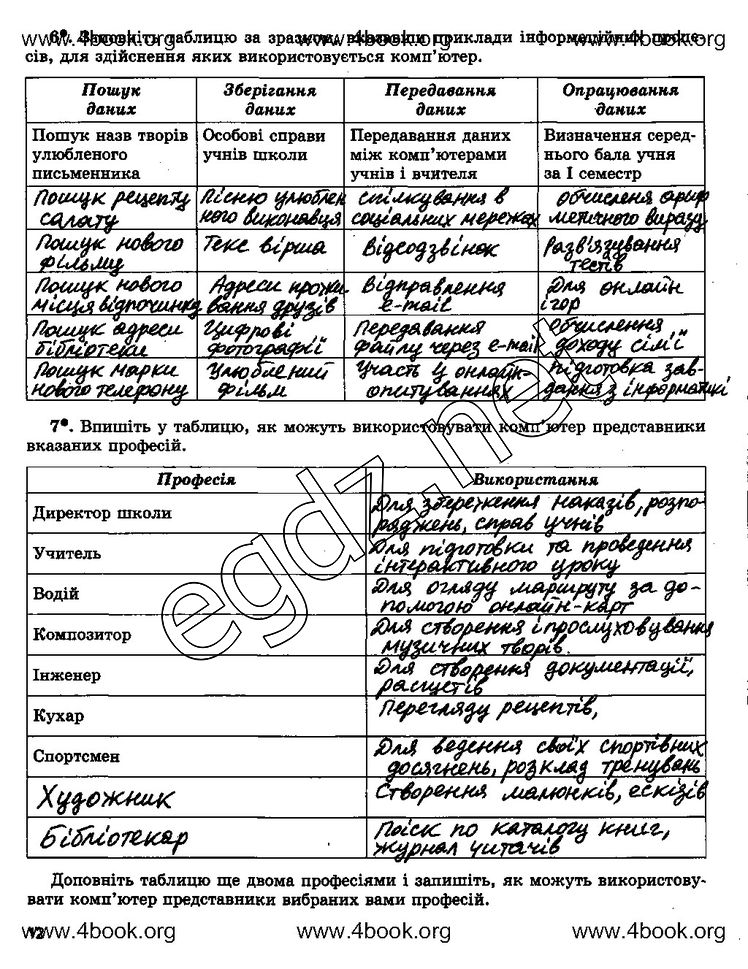 www.4book.org www.4book.org www.4book.org
6*. Заповніть таблицю за зразком, вказавши приклади інформаційних проце-
сів, для здійснення яких використовується комп'ютер.
Пошук даних Зберігання даних Передавання даних Опрацювання даних
Пошук назв творів улюбленого письменника
Особові справи учнів школи
Передавання даних між комп'ютерами учнів і вчителя
Визначення серед-нього бала учня за І семестр
Пошук рецепту салату
Пісню улюблен ного виконавця
спілкування в соціальних мережах
обчисленя ариф метичного виразу
Пошук нового фільму
Текс вірша
Відеодзвінок
Розв'язування тестів
Пошук нового місця відпочинку
Адреси прожи вання друзів
Відправлення e-mail
Для онлайн ігор
Пошук адреси бібліотеки
Цифрові фотографії
Передавання файлу через e-mail
Обчислення доходу сім'ї
Пошук марки нового телефону
Улюблений фільм
Участь у онлайн-опитуваннях
підготовка зав-дання з інформатики
7*. Впишіть у таблицю, як можуть використовувати комп'ютер представники
вказаних професій.
Професія Використання
Директор школи
Для збереження наказів, розпо-
ряджень, справ учнів
Учитель
Для підготовки та проведення
інтерактивного уроку
Водій
Для огляду маршруту за до-
помогою онлайн-карт
Композитор
Для створення і прослуховування
музичних творів.
Інженер
Для створення документації,
расщетів
Кухар
Перегляду рецептів,
Спортсмен
Для ведення своїх спортівних
досягнень, розклад тренувань
Художник
Створення малюнків, ескізів
Бібліотекар
Поіск по каталогу книг,
журнал читачів
egdz.net
Доповніть таблицю ще двома професіями і запишіть, як можуть використову-
вати комп'ютер представники вибраних вами професій.
12
www.4book.org www.4book.org www.4book.org